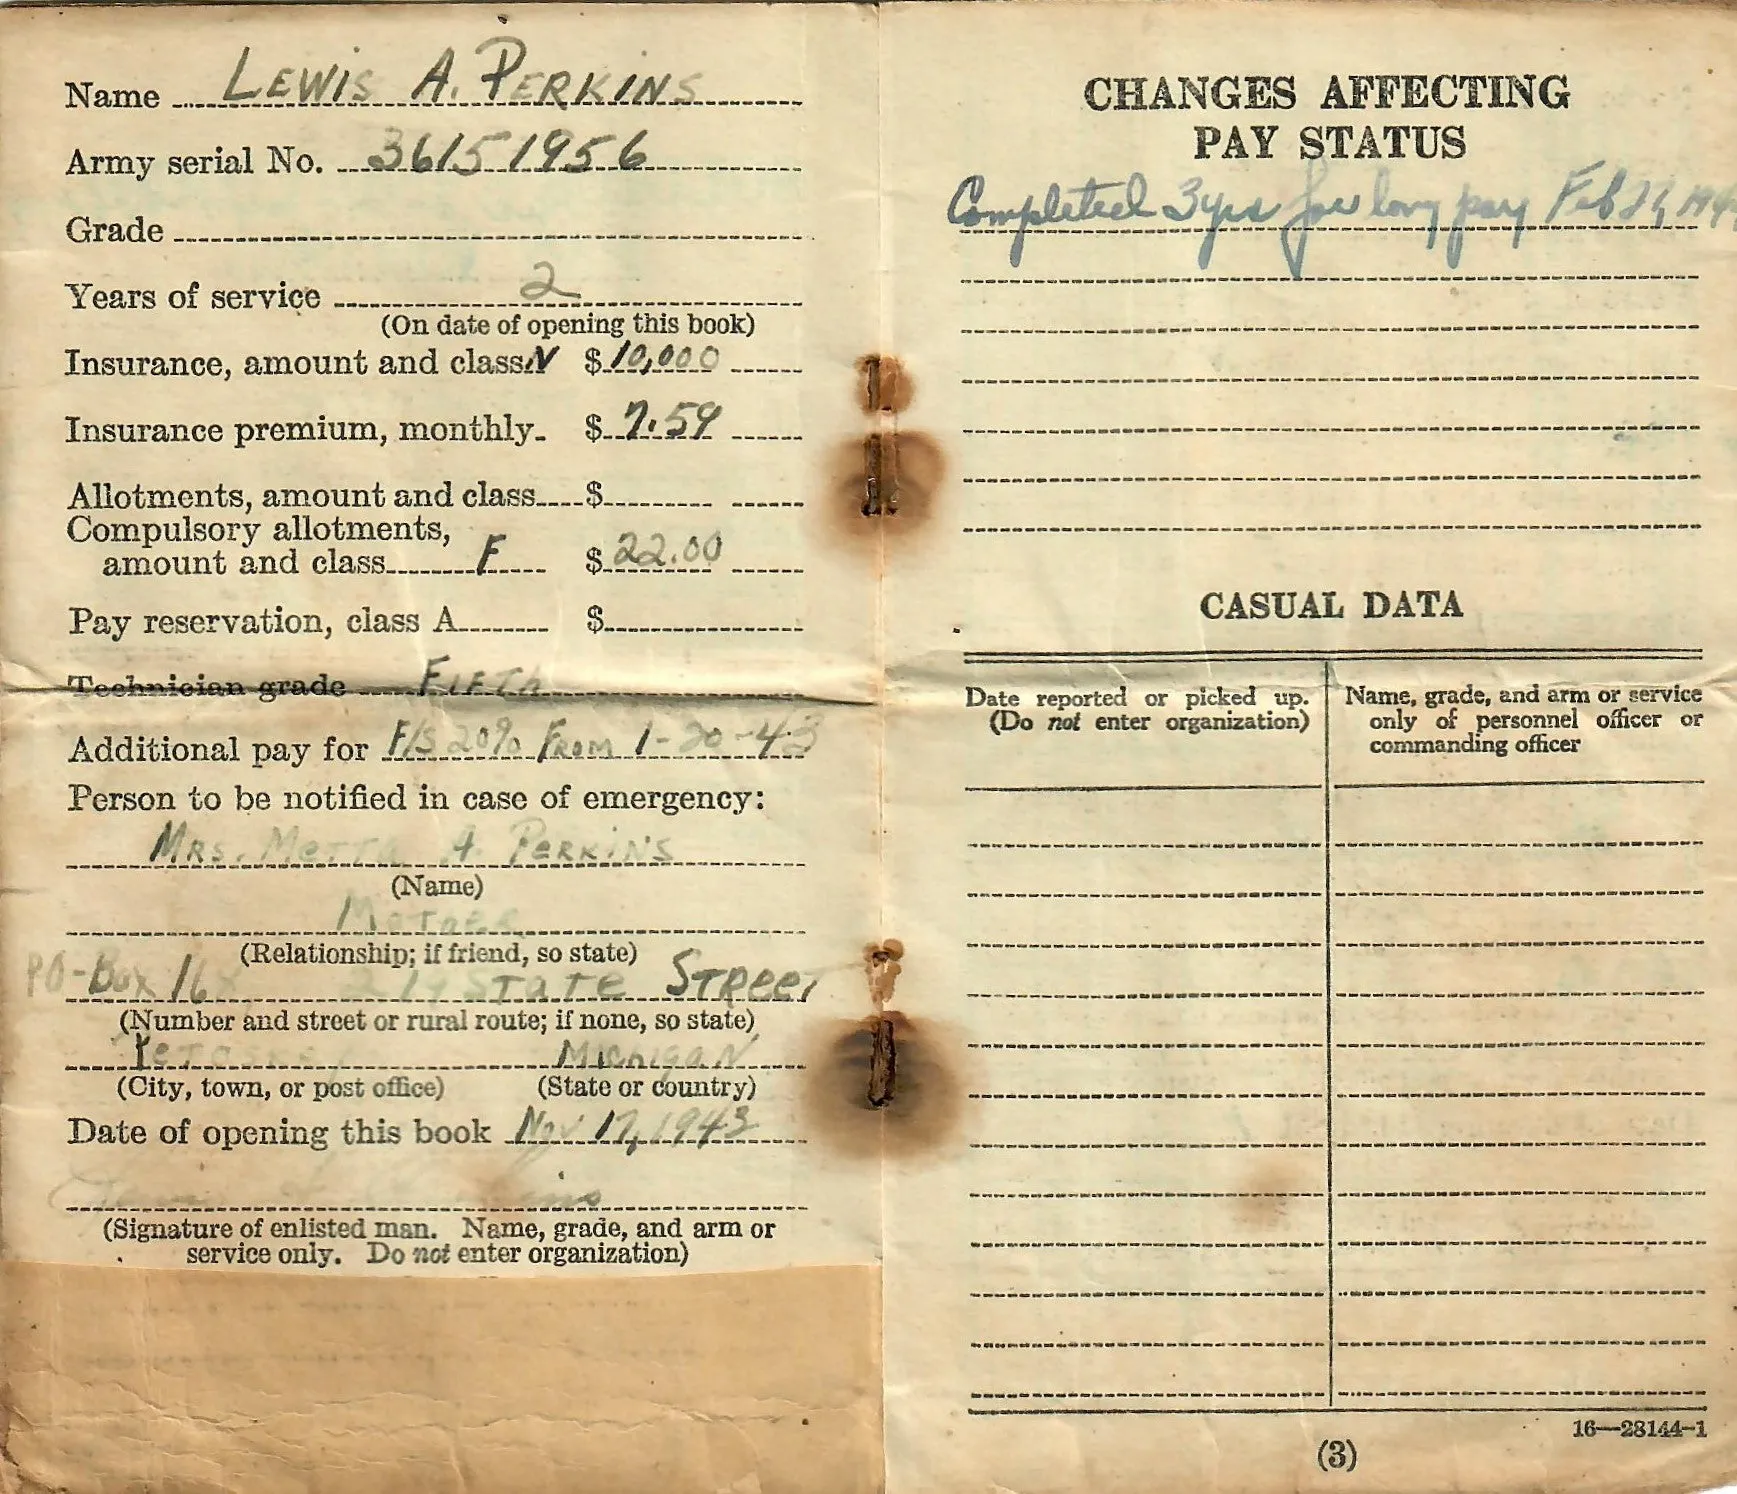 Name LEWIS A. PERKINS
Army serial No. 36151956
Grade
Years of service 2
(On date of opening this book)
Insurance, amount and class N $ 10,000
Insurance premium, monthly $ 7.59
Allotments, amount and class $
Compulsory allotments,
amount and class F $ 22.00
Pay reservation, class A $
Technician grade FIFTH
Additional pay for F/S 20% FROM 1-20-43
Person to be notified in case of emergency:
MRS. METTA A. PERKINS
(Name)
MOTHER
(Relationship; if friend, so state)
PO-Box STATE STREET
(Number and street or rural route; if none, so state)
PETOSKEY MICHIGAN
(City, town, or post office) (State or country)
Date of opening this book Nov 17, 1943
(Signature of enlisted man. Name, grade, and arm or
service only. Do not enter organization)
CHANGES AFFECTING
PAY STATUS
Completed 3yrs for long pay Feb
CASUAL DATA
Date reported or picked up.
(Do not enter organization)
Name, grade, and arm or service
only of personnel officer or
commanding officer
16—28144-1
(3)